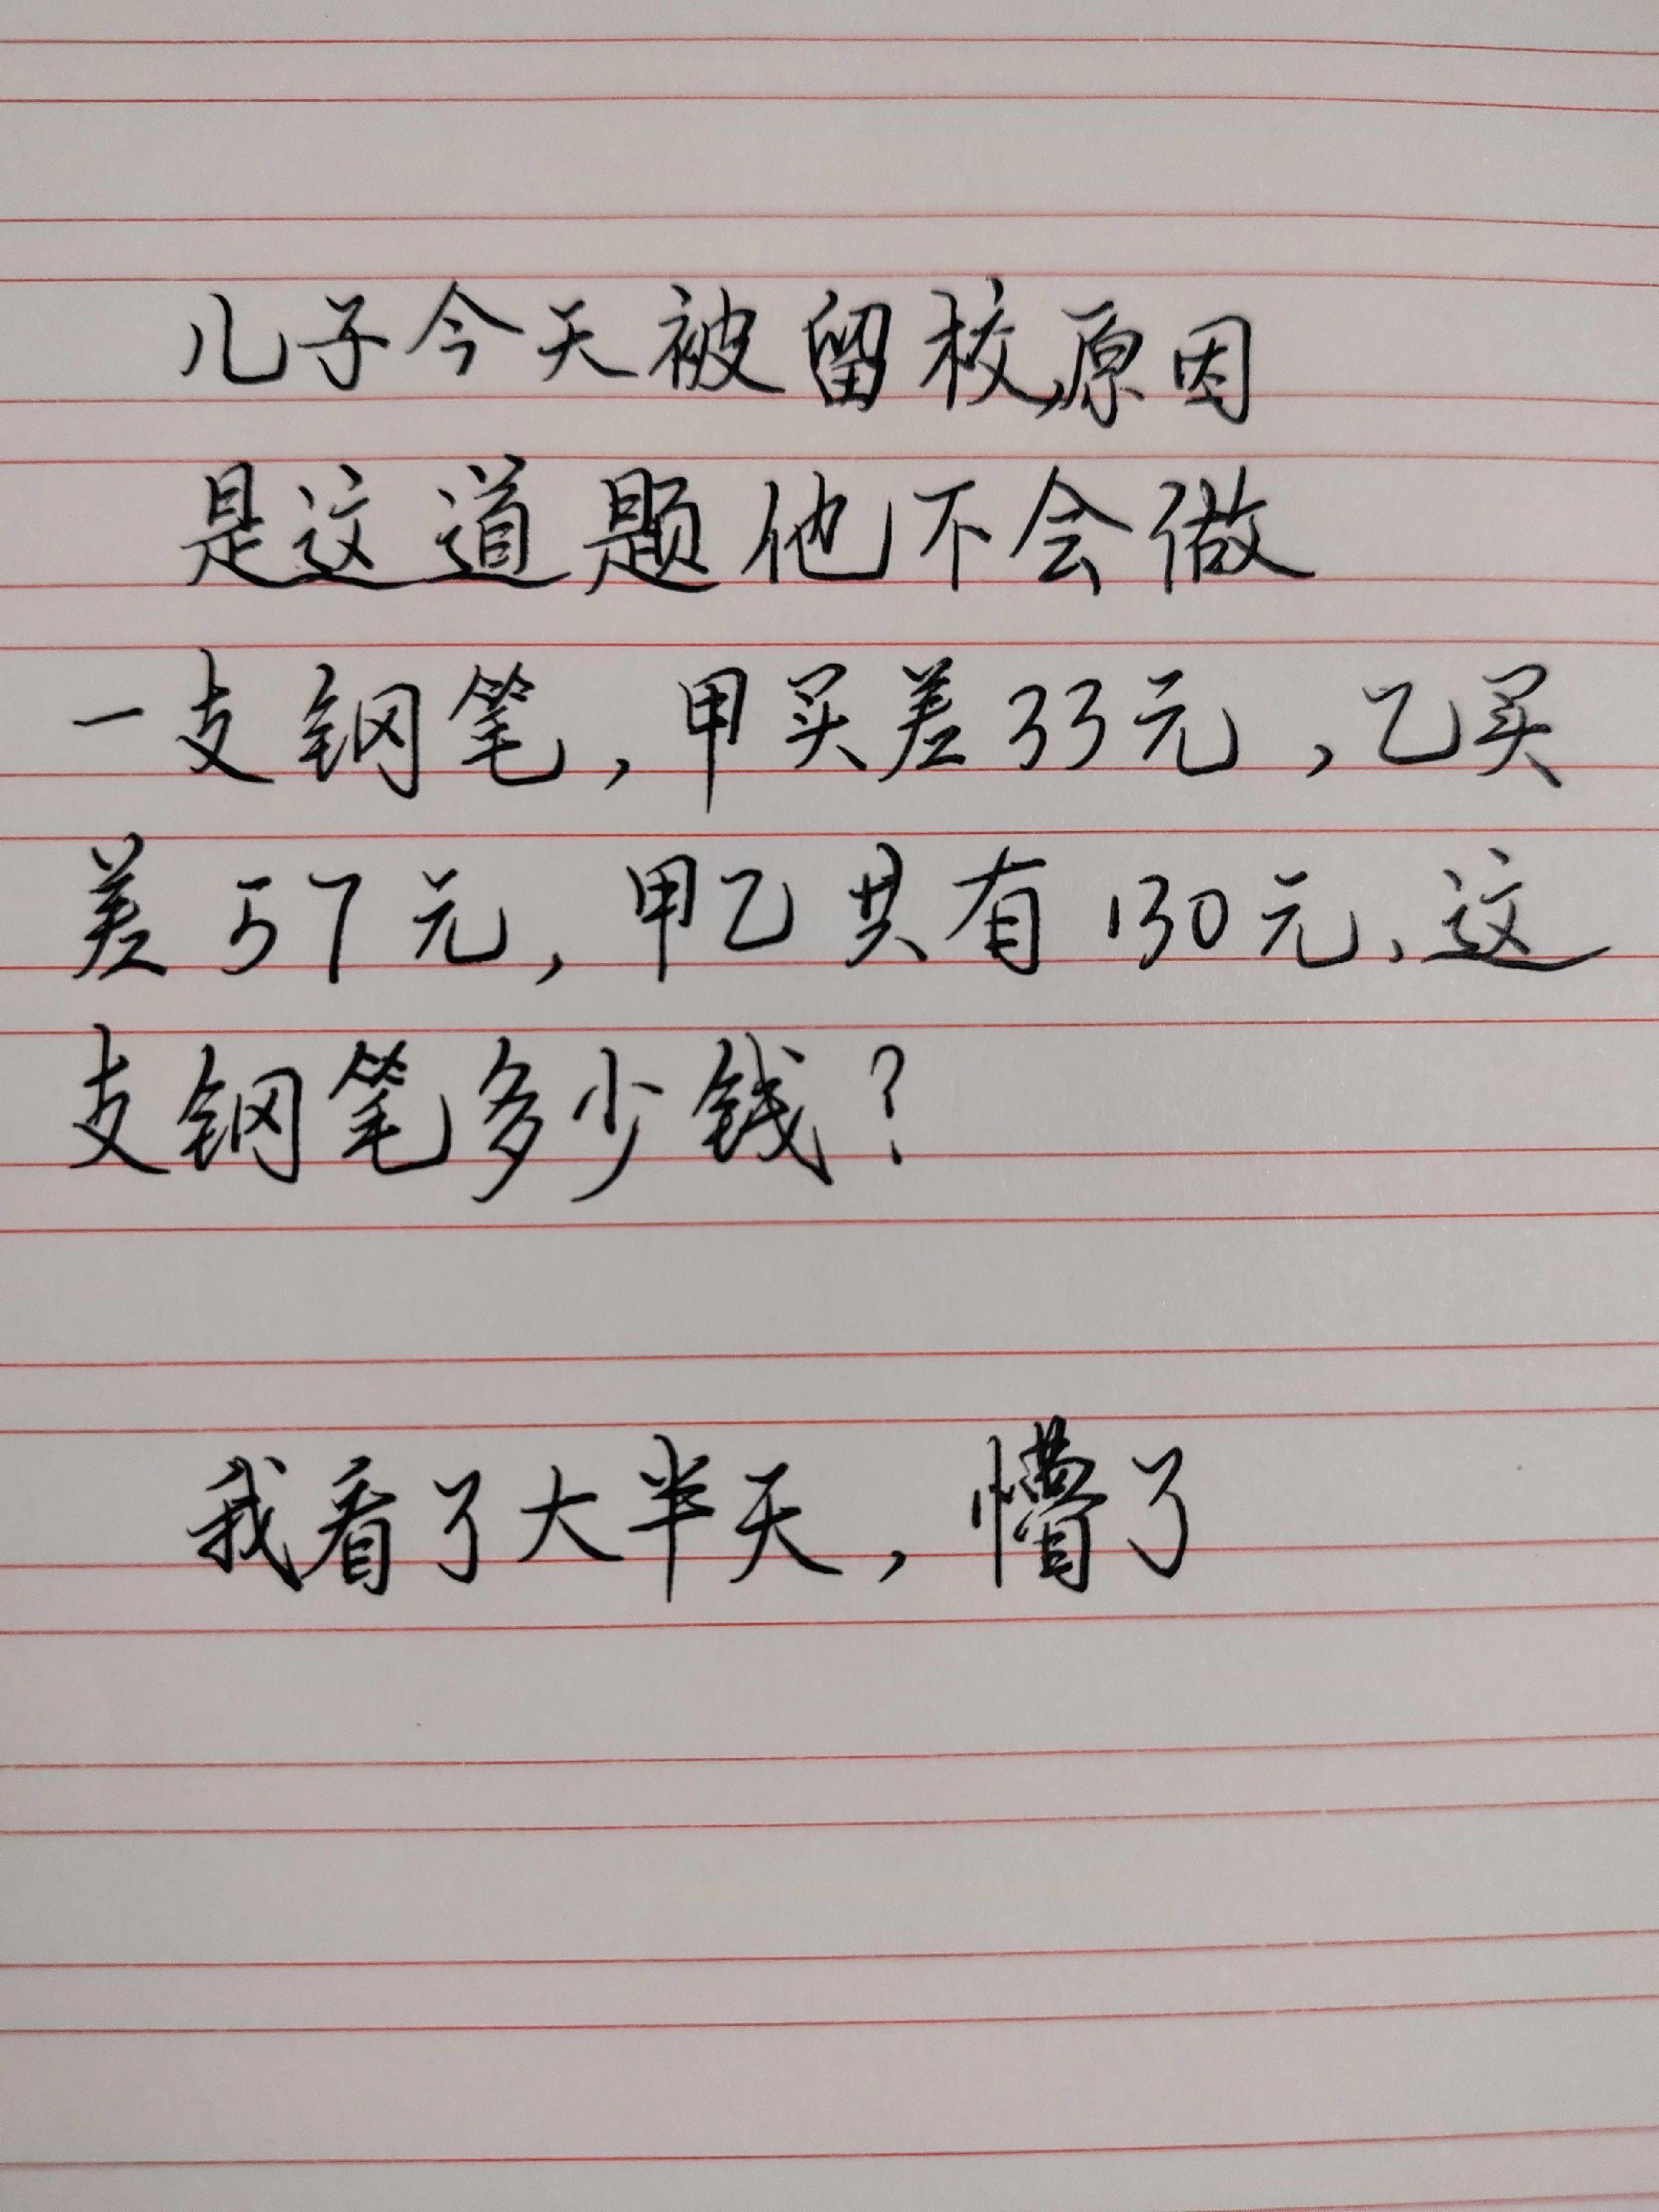 儿子今天被留校,原因
是这道题他不会做
一支钢笔,甲买差33元,乙买
差57元,甲乙共有130元、这
支钢笔多少钱?
我看了大半天,懵了